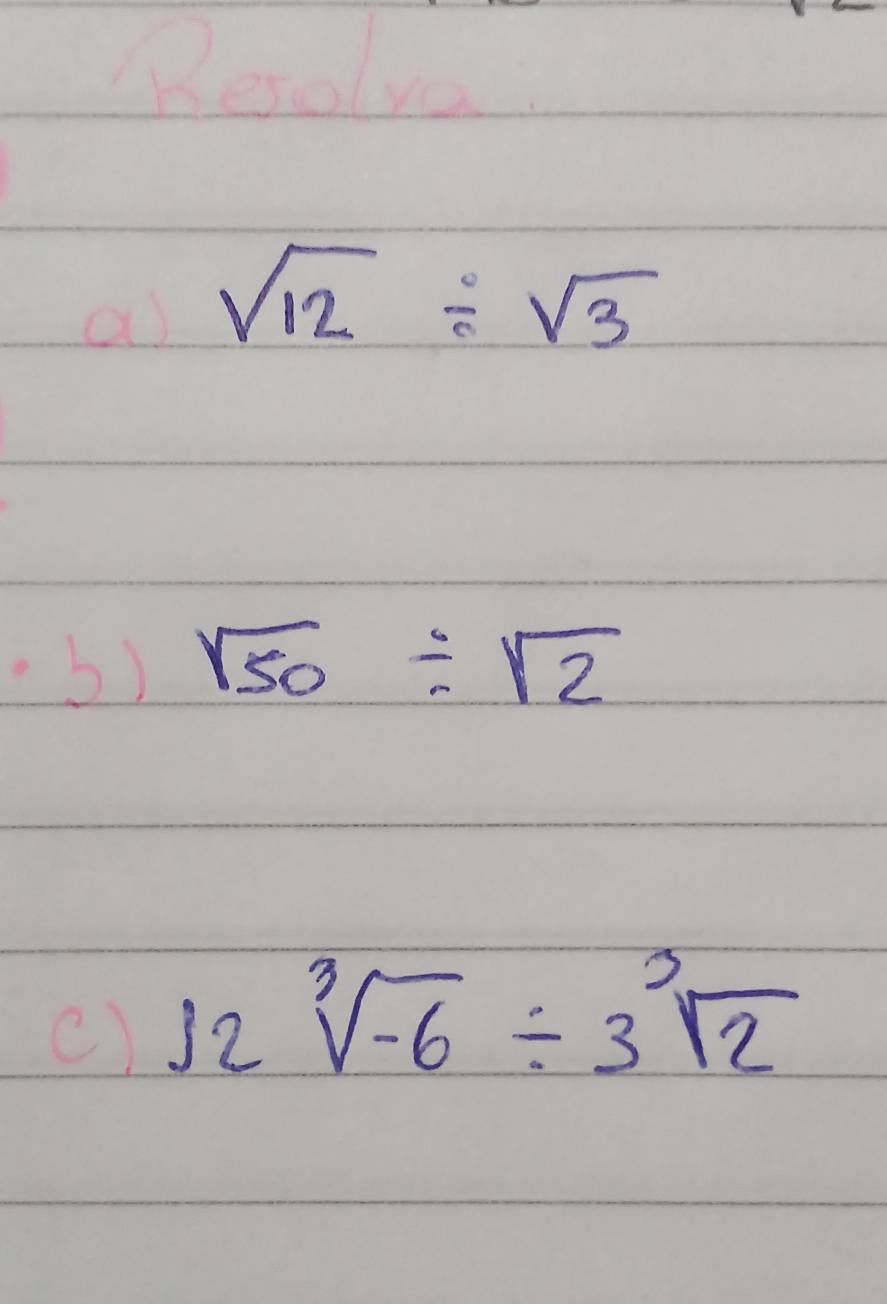 Resolva.
a) √12 ÷ √3
b) √50 ÷ √2
c) 12 ∛-6 ÷ 3 ∛2